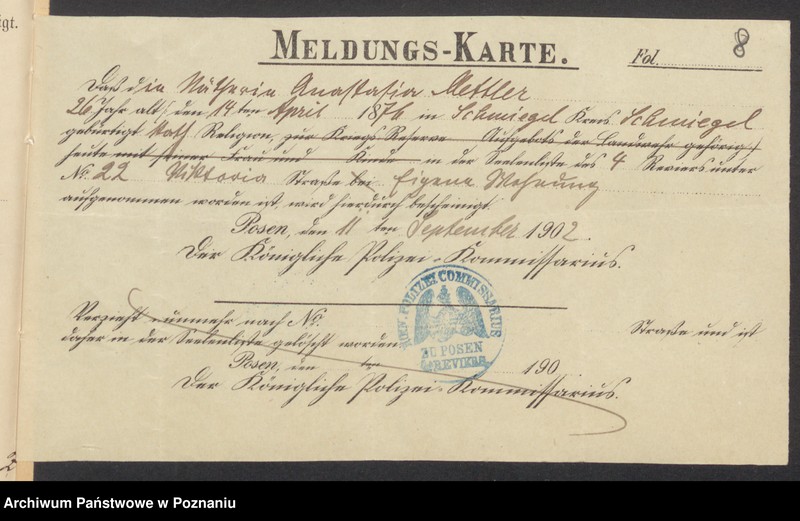 igt.
MELDUNGS-KARTE.
Fol. 8
Daß die Nätherin Anastasia Mettler
26 Jahr alt, den 14ten April 1876 in Schmiegel Kreis Schmiegel
gebürtigt kath Religion, zur Kriegs-Reserve Aufgebots der Landwehr gehörig,
heute mit seiner Frau und Kinde in der Seelenliste des 4 Reviers unter
No. 22 Viktoria Straße bei Eigene Wohnung
aufgenommen worden ist, wird hierdurch bescheinigt.
Posen, den 11 ten September 1902.
Der Königliche Polizei-Kommissarius.
POLIZEI COMMISSARIUS
ZU POSEN
REVIERS.
Verzieht nunmehr nach No. Straße und ist
daher in der Seelenliste gelöscht worden.
Posen, den ten 190
Der Königliche Polizei-Kommissarius.
Archiwum Państwowe w Poznaniu